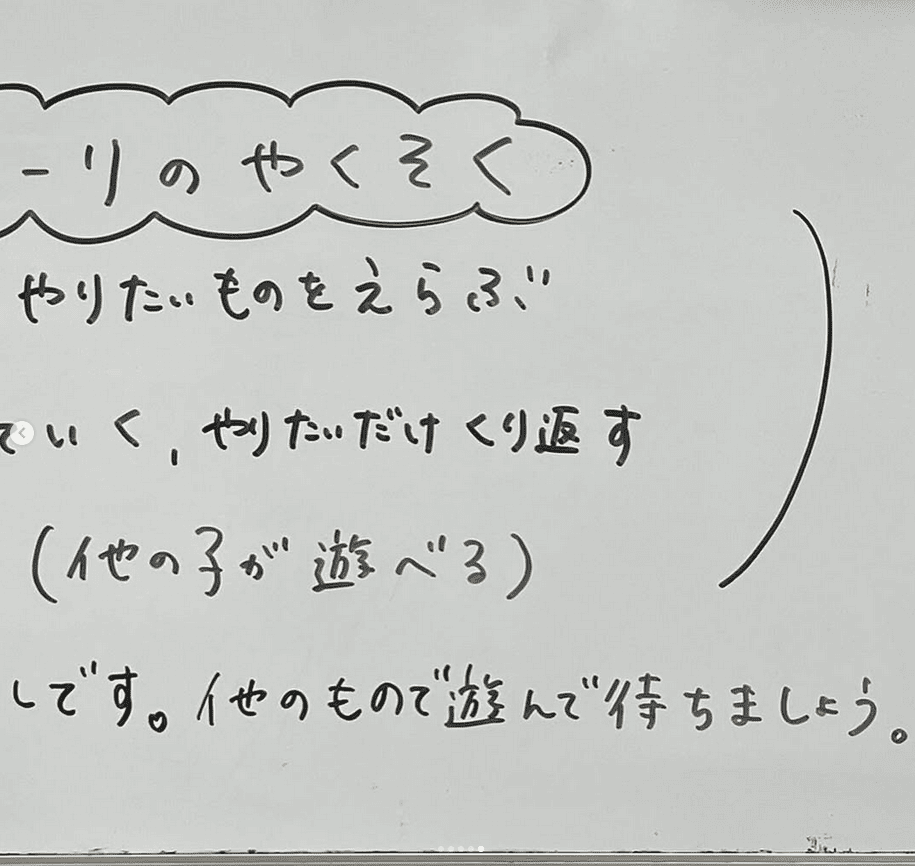 ーリのやくそく
やりたいものをえらぶ
ていく、やりたいだけくり返す
(他の子が遊べる)
しです。他のもので遊んで待ちましょう。